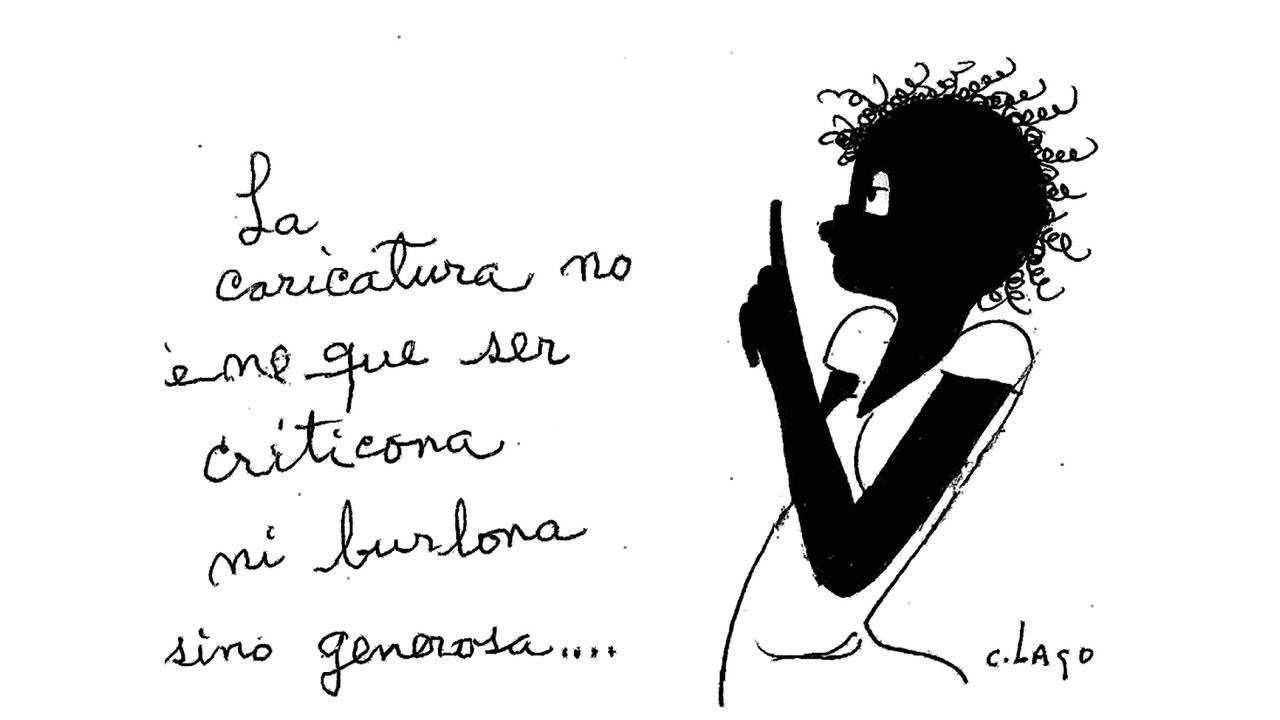 La
caricatura no
ene que ser
criticona
ni burlona
sino generosa....
C. LAGO